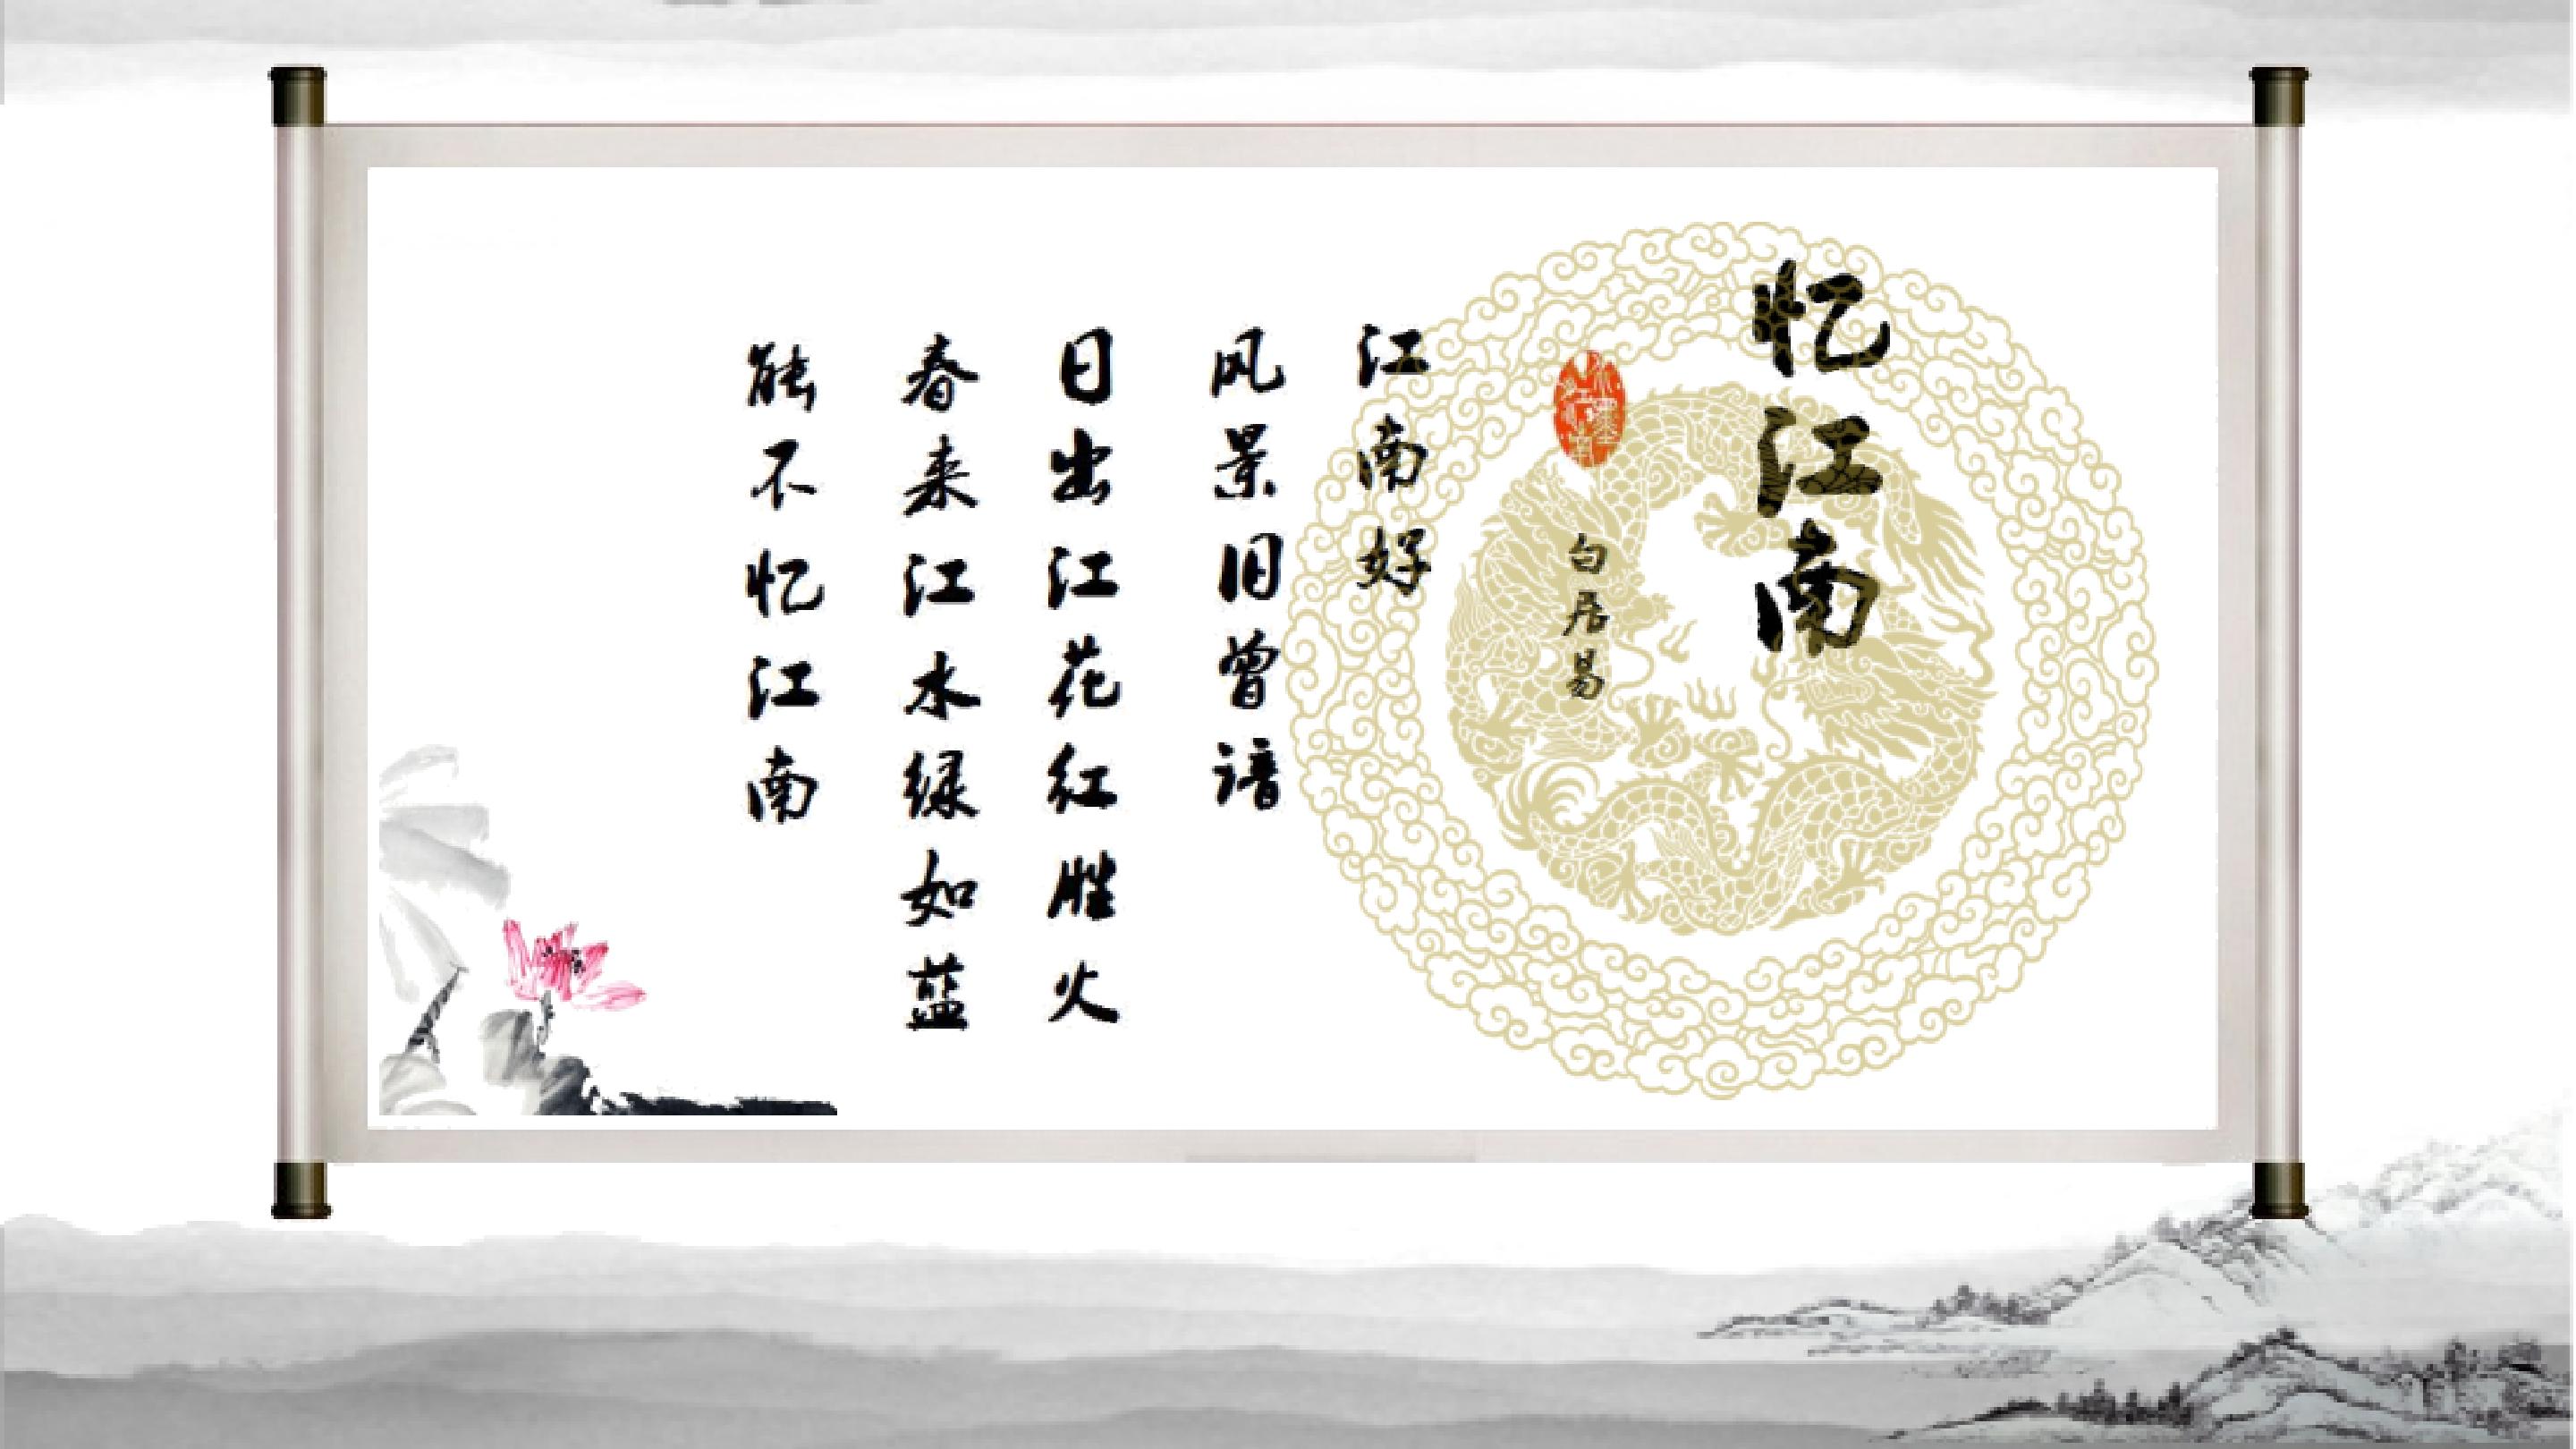 忆江南
白居易
江南好
风景旧曾谙
日出江花红胜火
春来江水绿如蓝
能不忆江南